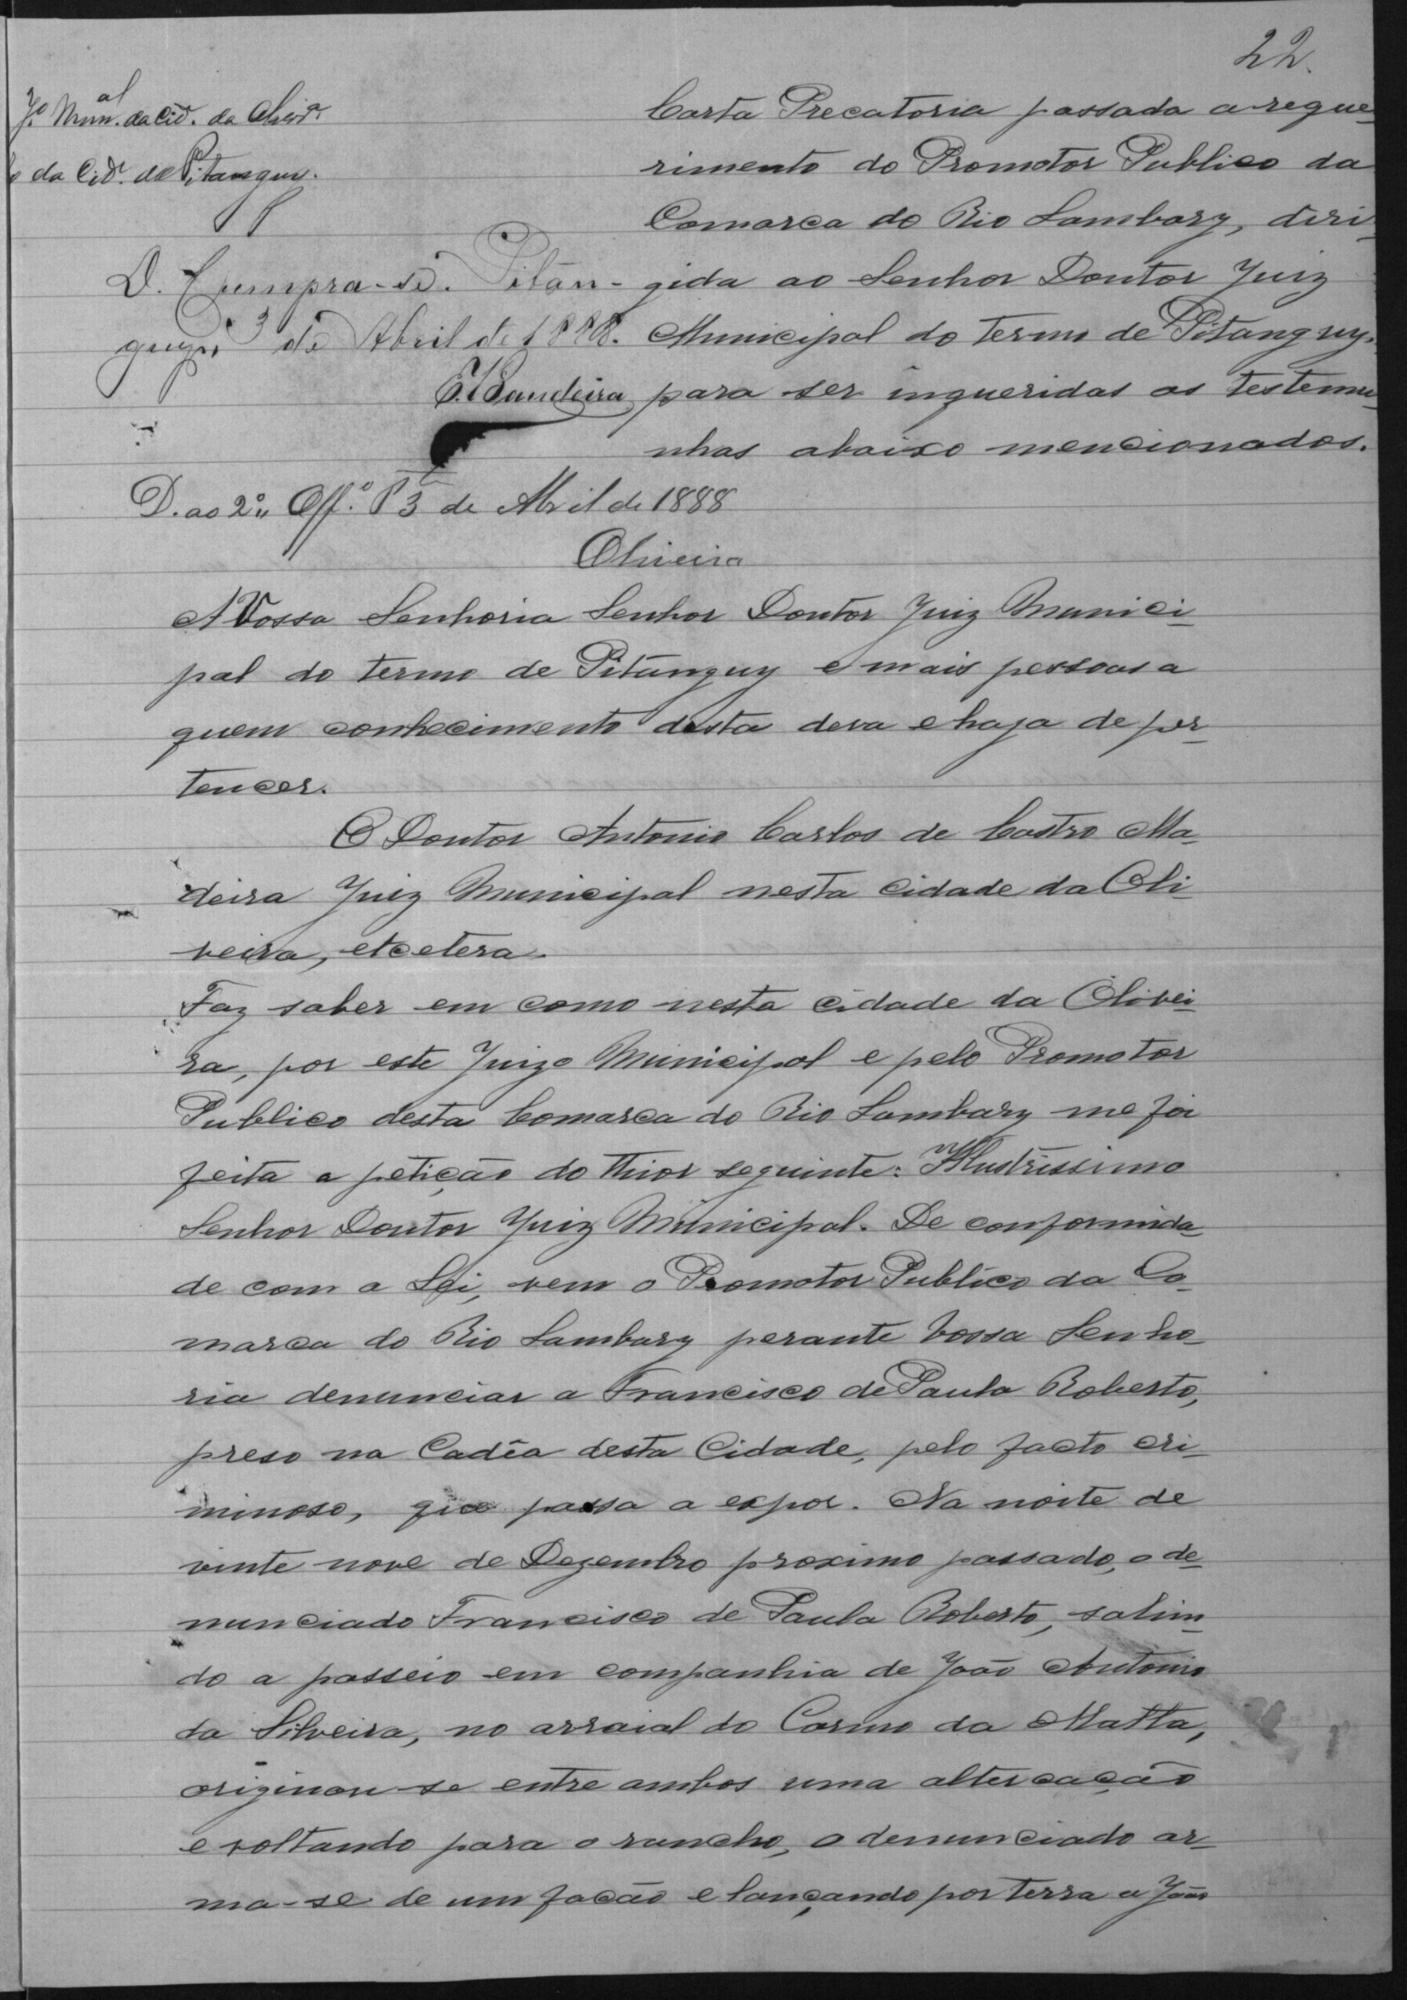 22.
Jº. Munal. da Cidº. da Olivrª
da Cidº. de Pitanguy.
Carta Precatoria passada a reque-
rimento do Promotor Publico da
Comarca do Rio Lambary, diri-
gida ao Senhor Doutor Juiz
Municipal do termo de Pitanguy,
para ser inqueridas as testemu-
nhas abaixo mencionados.
D. Cumpra-se. Pitan-
guy, 3 de Abril de 1888.
Bandeira
D. ao 2º Offº. P 3 de Abril de 1888
Oliveira
A Vossa Senhoria Senhor Doutor Juiz Munici-
pal do termo de Pitanguy e mais pessoas a
quem conhecimento desta deva e haja de per-
tencer.
O Doutor Antonio Carlos de Castro Ma-
deira Juiz Municipal nesta cidade da Oli-
veira, etcetera.
Faz saber em como nesta cidade da Olivei-
ra, por este Juizo Municipal e pelo Promotor
Publico desta Comarca do Rio Lambary me foi
feita a petição do thior seguinte: Illustrissimo
Senhor Doutor Juiz Municipal. De conformida-
de com a Lei, vem o Promotor Publico da Co-
marca do Rio Lambary perante Vossa Senho-
ria denunciar a Francisco de Paula Roberto,
preso na Cadêa desta Cidade, pelo facto cri-
minoso, que passa a expor. Na noite de
vinte nove de Dezembro proximo passado, o de-
nunciado Francisco de Paula Roberto, sahin-
do a passeio em companhia de João Antonio
da Silveira, no arraial do Carmo da Matta,
originou-se entre ambos uma altercação
e voltando para o rancho, o denunciado ar-
ma-se de um facão e lançando por terra a João